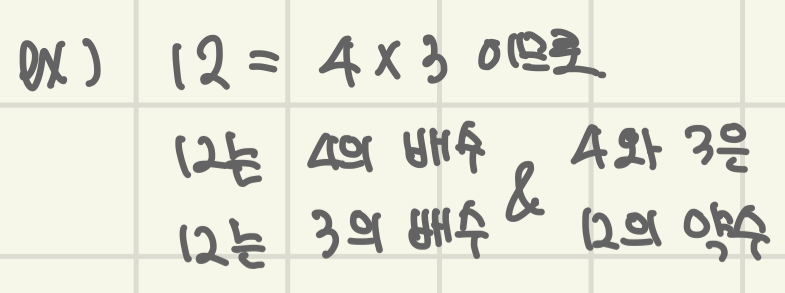 ex) 12 = 4 x 3 이므로
12는 4의 배수 & 4와 3은
12는 3의 배수 12의 약수